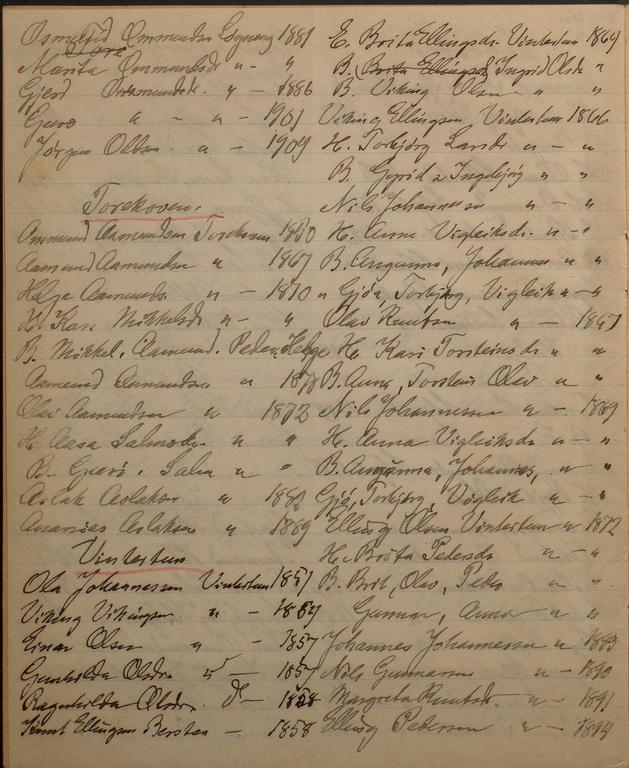 Ommund Ommundsen 1881
Tore
Marita Ommundsdr " - "
Gjerd Ommundsdr. " - 1886
Guro " - " - 1901
Jørgen Olsen " - 1909
Torekoven.
Ommund Aamundsen Torekoven 1850
Aamund Aamundsen " 1867
Helge Aamunds. " - 1870
H. Kari Mikkelsdr " - "
B. Mikkel, Aamund, Peder, Helge
Aamund Aamundsen " 187
Olav Aamundsen " 1872
H. Aasa Salmosdr. " "
B. Guro, Salve " "
Aslak Aslaksen " 1882
Ananias Aslaksen " 1889
Vintertun
Ola Johannessen Vintertun 1857
Viking Vikingsen " - 1857
Einar Olsen " - 1857
Gunhilda Olsdr. " - 1857
Ragnhilda Olsdr. do - 1858
Knut Ellingsen Berstad - 1858
E. Brita Ellingsdr. Vintertun 1864
B. (Brita Ellingsd) Ingrid Olsdr "
B. Viking Olsen " "
Viking Ellingsen, Vintertun 1866
H. Torbjørg Larsdr " - "
B. Gyrid & Ingebjørg " "
Nils Johannessen " - "
H. Anna Vigleiksdr. " - "
B. Johannes " "
" Torbjørg, Vigleik " - "
Olav Knutsen " - 1867
H. Kari Torsteinsdr " "
B. Anna, Torstein Olav " "
Nils Johannessen " - 1869
H. Anna Vigleiksdr " - "
B. Johannes, " "
Torbjørg, Vigleik " - "
Elling Olsen Vintertun " 1872
H. Brita Pedersdr " - "
B. Brit, Olav, Peder " "
Gunnar, Anna " "
Johannes Johannessen " - 1883
Nils Gunnarsen " - 1890
Margreta Knutsdr. " - 1891
Elling Pedersen " - 1894